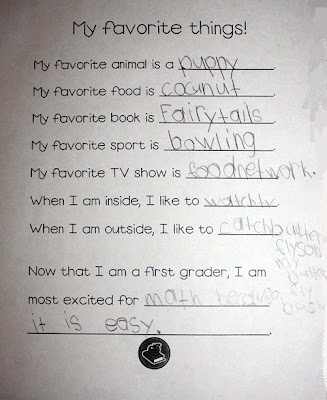 My favorite things!
My favorite animal is a puppy.
My favorite food is cocunut.
My favorite book is Fairytails.
My favorite sport is bowling.
My favorite TV show is foodnetwork.
When I am inside, I like to watchtv.
When I am outside, I like to catchbutter
flyson
my
butter
fly
Now that I am a first grader, I am
most excited for math because
it is easy.